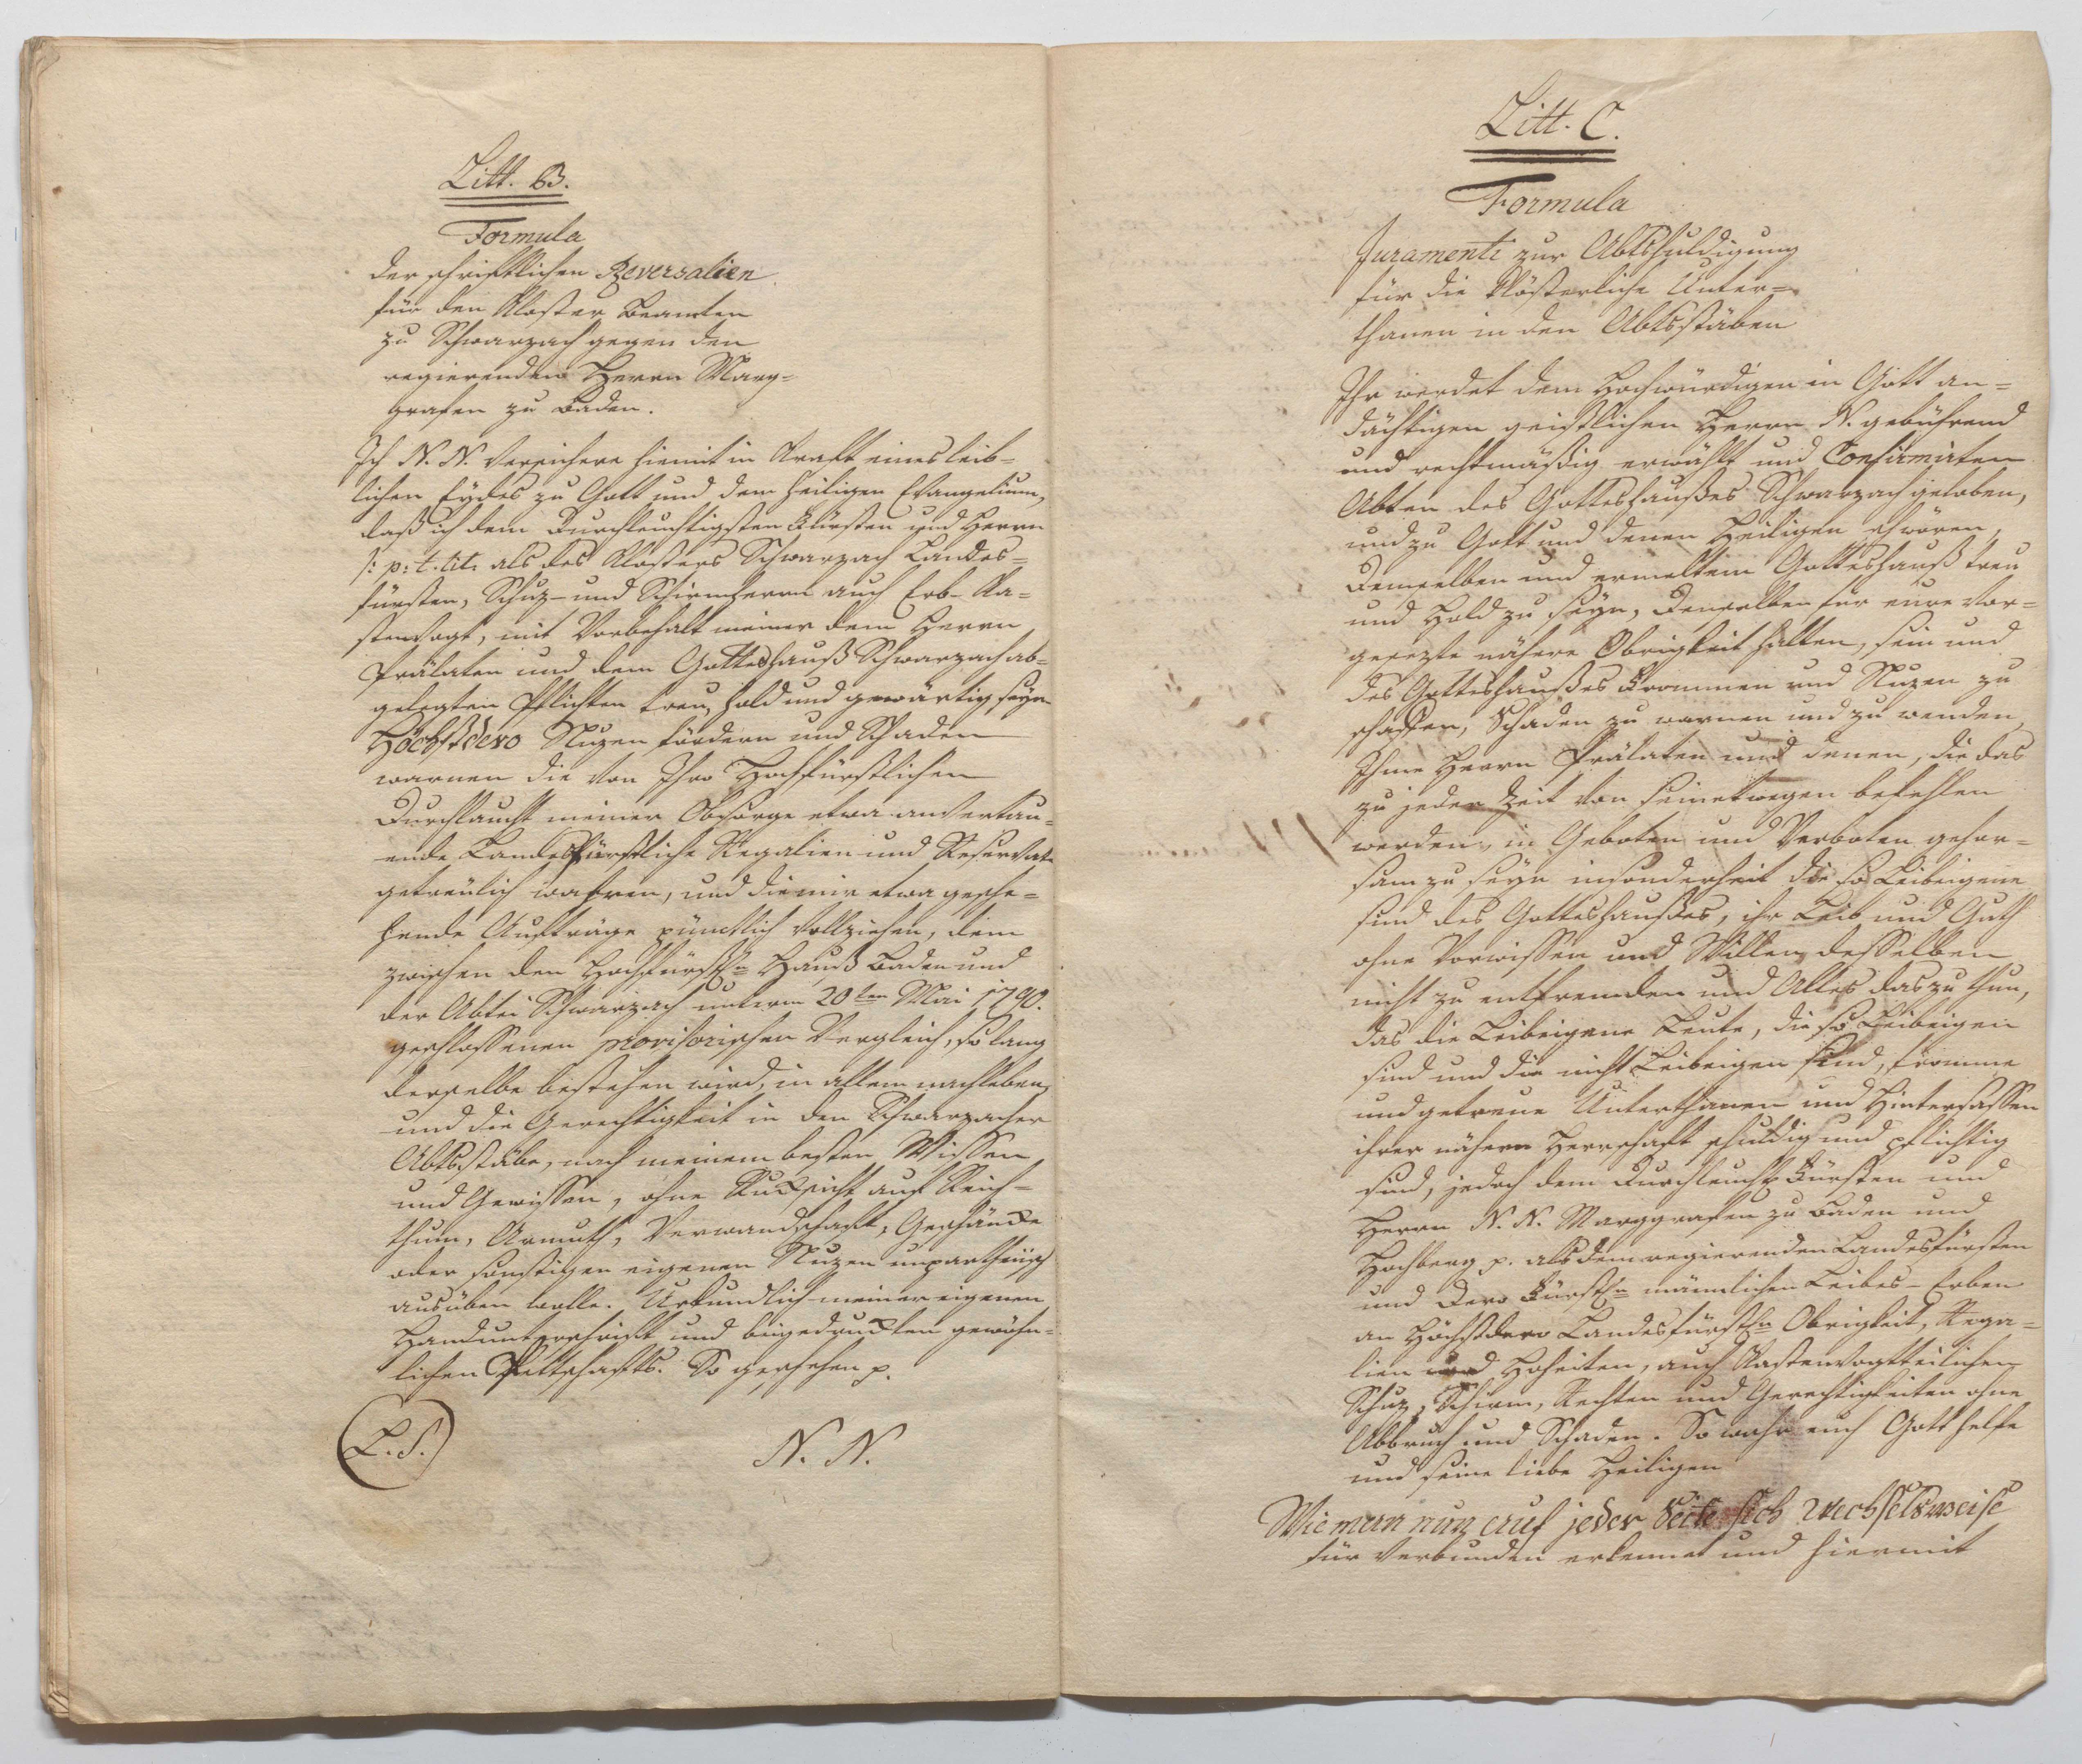 Litt. B.
Formula
der schriftlichen Reversalien
für den Kloster Beamten
zu Schwarzach gegen den
regierenden Herrn Marg=
grafen zu Baden.
Ich N. N. versichere hiemit in Kraft eines leib=
lichen Eydes zu Gott und dem heiligen Evangelium,
daß ich dem Durchleuchtigsten Fürsten und Herrn
/: p: t. tit: als des Klosters Schwarzach Landes=
fürsten, Schuz- und Schirmherrn auch Erb-Ka=
stenvogt, mit Vorbehalt meiner dem Herrn
Prälaten und dem Gotteshauß Schwarzach ab=
gelegten Pflichten treu, hold und gewärtig seyn
Höchstdero Nuzen fördern und Schaden
warnen die von Ihro Hochfürstlichen
Durchlaucht meiner Obsorge etwa anvertrau=
ende Landesfürstliche Regalien und Reservate
getreulich wahren, und die mir etwa gesche=
hende Aufträge pünctlich vollziehen, dem
zwischen dem Hochfürstln Hauß Baden und
der Abtei Schwarzach unterm 20ten Mai 1790.
geschlossenen provisorischen Vergleich, so lang
derselbe bestehen wird, in allem nachleben,
und die Gerechtigkeit in den Schwarzacher
Abtsstäbe, nach meinem besten Wissen
und Gewissen, ohne Rucksicht auf Reich=
thum, Armuth, Verwandschaft, Geschäncke
oder sonstigen eigenen Nuzen unpartheiisch
ausüben wolle. Urkundlich meiner eigenen
Handunterschrift und beigedruckten gewöhn=
lichen Pettschafts. So geschehen p.
(L. S.) N. N.
Litt. C.
Formula
Juramenti zur Abtshuldigung
für die Klösterliche Unter=
thanen in den Abtsstäben
Ihr werdet dem Hochwürdigen in Gott an=
dächtigen geistlichen Herrn N. gebührend
und rechtmäßig erwählt und Confirmirten
Abten des Gotteshaußes Schwarzach geloben,
und zu Gott und denen Heiligen schwören,
Demselben und ermeltem Gotteshauß treu
und Hold zu seyn, Denselben für eure vor=
gesezte nähere Obrigkeit halten, sein und
des Gotteshaußes Frommen und Nuzen zu
schaffen, Schaden zu warnen und zu wenden,
Ihme Herrn Prälaten und denen, die das
zu jeder Zeit von seinetwegen befehlen
werden, in Geboten und Verboten gehor=
sam zu seyn insonderheit die so Leibeigene
sind des Gotteshaußes, ihr Leib und Guth
ohne Vorwissen und Willen desselben
nicht zu entfremden und Alles das zu thun,
das die Leibeigene Leute, die so Leibeigen
sind und die nicht Leibeigen sind, fromme
und getreue Unterthanen und Hintersassen
ihrer nähern Herrschaft schuldig und pflichtig
sind, jedoch dem Durchleucht. Fürsten und
Herrn N. N. Marggrafen zu Baden und
Hochberg p. als dem regierenden Landesfürsten
und Dero Fürstln männlichen Leibes-Erben
an Höchstdero Landesfürstln Obrigkeit, Rega=
lien und Hoheiten, auch Kastenvogteilichen
Schuz, Schirm, Rechten und Gerechtigkeiten ohne
Abbruch und Schaden. So wahr euch Gott helfe
und seine liebe Heiligen
Wie man nun auf jeder Seite sich wechselsweise
für verbunden erkennet und hiermit